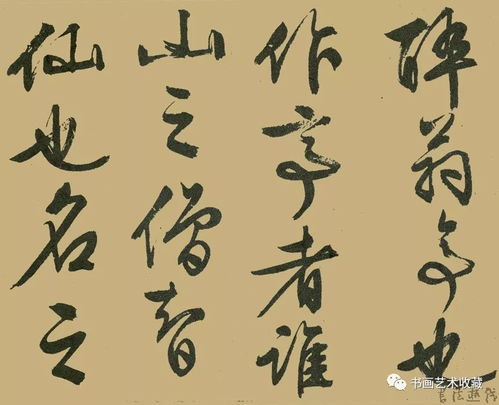 醉翁亭也
作亭者誰
山之僧智
仙也名之
书画艺术收藏